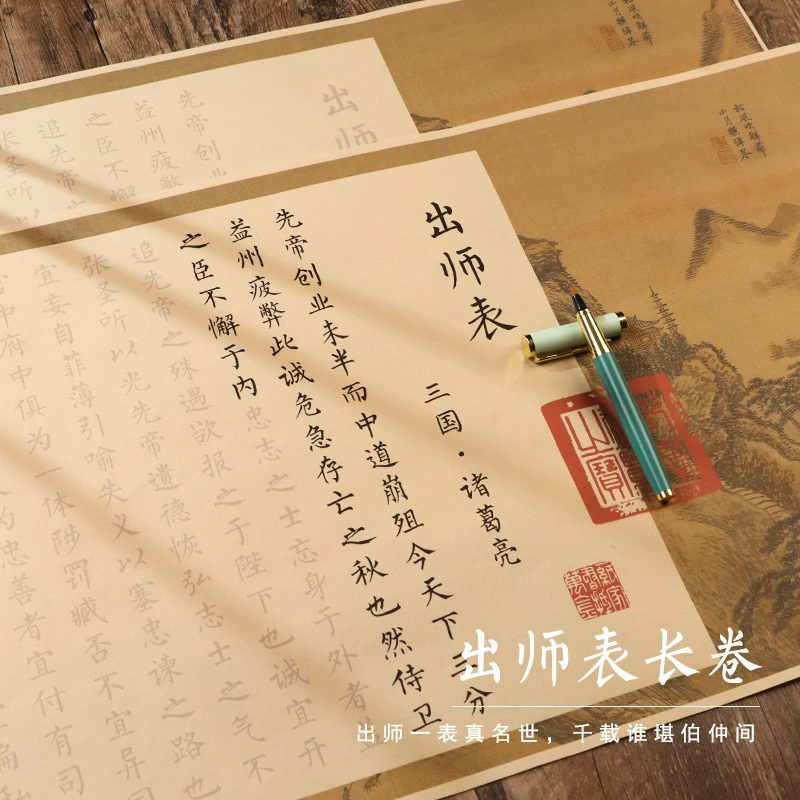 松風吹解帶
山月照彈琴
出师
先帝创业
益州疲弊
之臣不懈
追先帝之
张圣听以
松風吹解帶
山月照彈琴
出师表
三国·诸葛亮
先帝创业未半而中道崩殂今天下三分
益州疲弊此诚危急存亡之秋也然侍卫
之臣不懈于内忠志之士忘身于外者
追先帝之殊遇欲报之于陛下也诚宜开
张圣听以光先帝遗德恢弘志士之气不
宜妄自菲薄引喻失义以塞忠谏之路也
中府中俱为一体陟罚臧否不宜异同
为忠善者宜付有司
偏私
出师表长卷
出师一表真名世，千载谁堪伯仲间